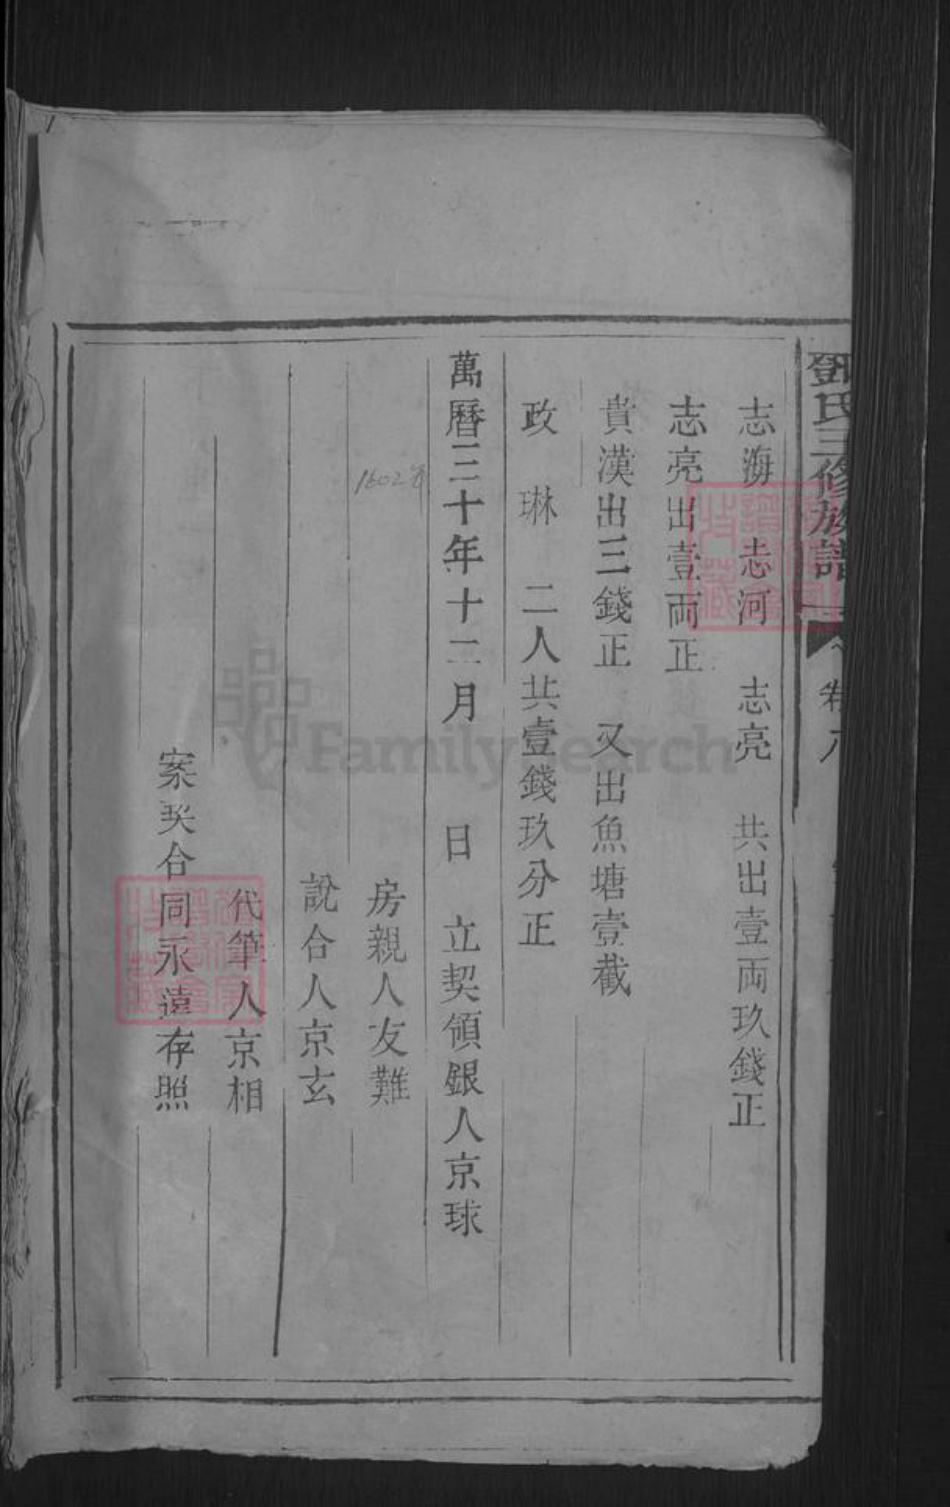 鄧氏三修族譜
志海　志河　志亮　共出壹両玖錢正
志亮出壹両正
貴漢出三錢正　又出魚塘壹截
政　琳　二人共壹錢玖分正
萬曆三十年十二月　日　立契領銀人京球
1602年
房親人友難
說合人京玄
代筆人京相
案契合同永遠存照
FamilySearch